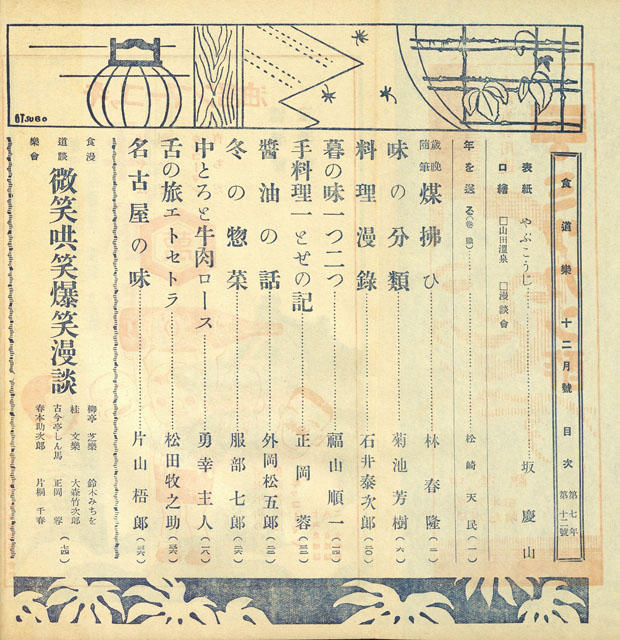 食道樂 十二月號 目次 第七年 第十二號
表紙 やぶこうじ 坂慶山
口繪 □山田温泉 □漫談會
年を送る(卷頭) 松崎天民(一)
歳晩隨筆 煤拂ひ 林春隆(二)
味の分類 菊池芳樹(六)
料理漫錄 石井泰次郎(一〇)
暮の味一つ二つ 福山順一(一四)
手料理一とぜの記 正岡蓉
醬油の話 外岡松五郎
冬の惣菜 服部七郎
中とろと牛肉ロース 勇幸主人(一八)
舌の旅エトセトラ 松田牧之助
名古屋の味 片山梧郎
食道樂漫談會 微笑哄笑爆笑漫談
柳亭芝樂 鈴木みちを
桂文樂 大森竹次郎
古今亭しん馬 正岡蓉
春本助次郎 片桐千春
(七四)
OTSUBO